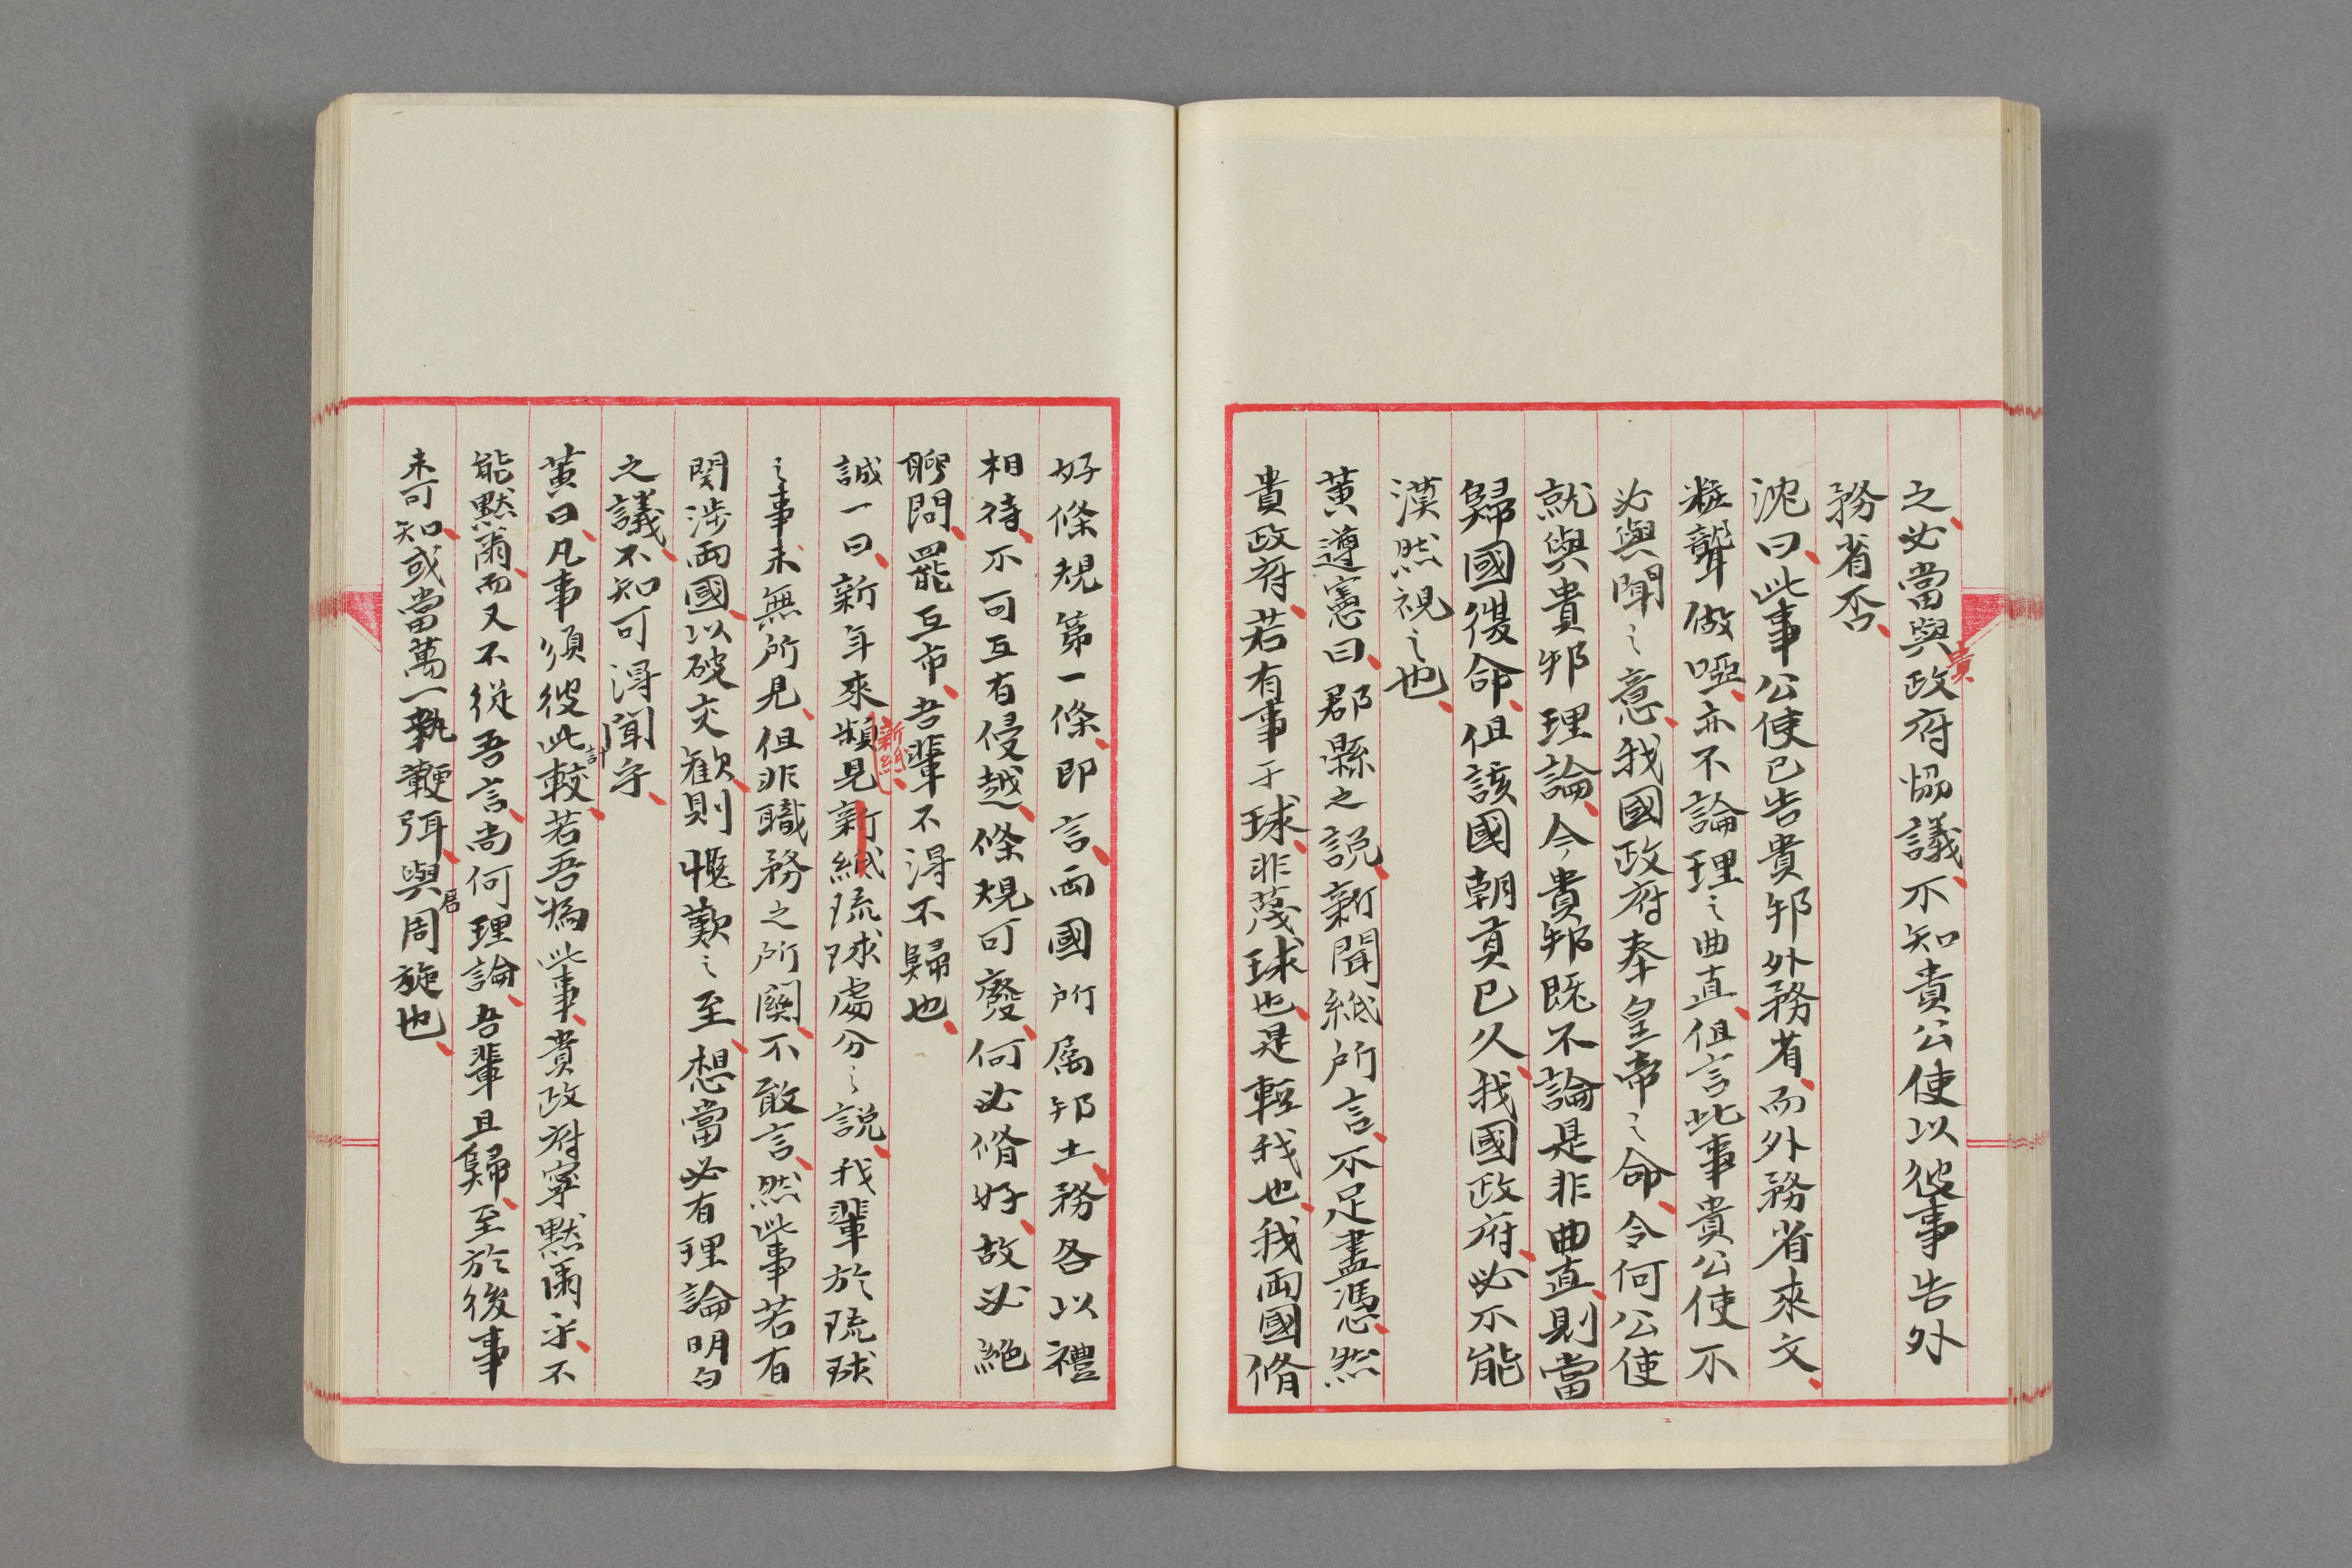 之必當與貴政府協議不知貴公使以彼事告外
務省否
沈曰此事公使已告貴邦外務省而外務省來文
粧聾做啞亦不論理之曲直但言此事貴公使不
必與聞之意我國政府奉皇帝之命令何公使
就與貴邦理論今貴邦既不論是非曲直則當
歸國復命但該國朝貢已久我國政府必不能
漠然視之也
黃遵憲曰郡縣之説新聞紙所言不足盡憑然
貴政府若有事于球非蔑球也是輕我也我兩國脩
好條規第一條即言兩國所属邦土務各以禮
相待不可互有侵越條規可廢何必脩好故必絕
聘問罷互市吾輩不得不歸也
誠一曰新年來頻見新紙新紙琉球處分之説我輩於琉球
之事未無所見但非職務之所關不敢言然此事若有
関涉兩國以破交歡則慨歎之至想當必有理論明白
之議不知可得聞乎
黃曰凡事須彼此計較若吾為此事貴政府寧默爾乎不
能默爾而又不從吾言尚何理論吾輩且歸至於後事
未可知或當萬一執鞭弭與君周旋也